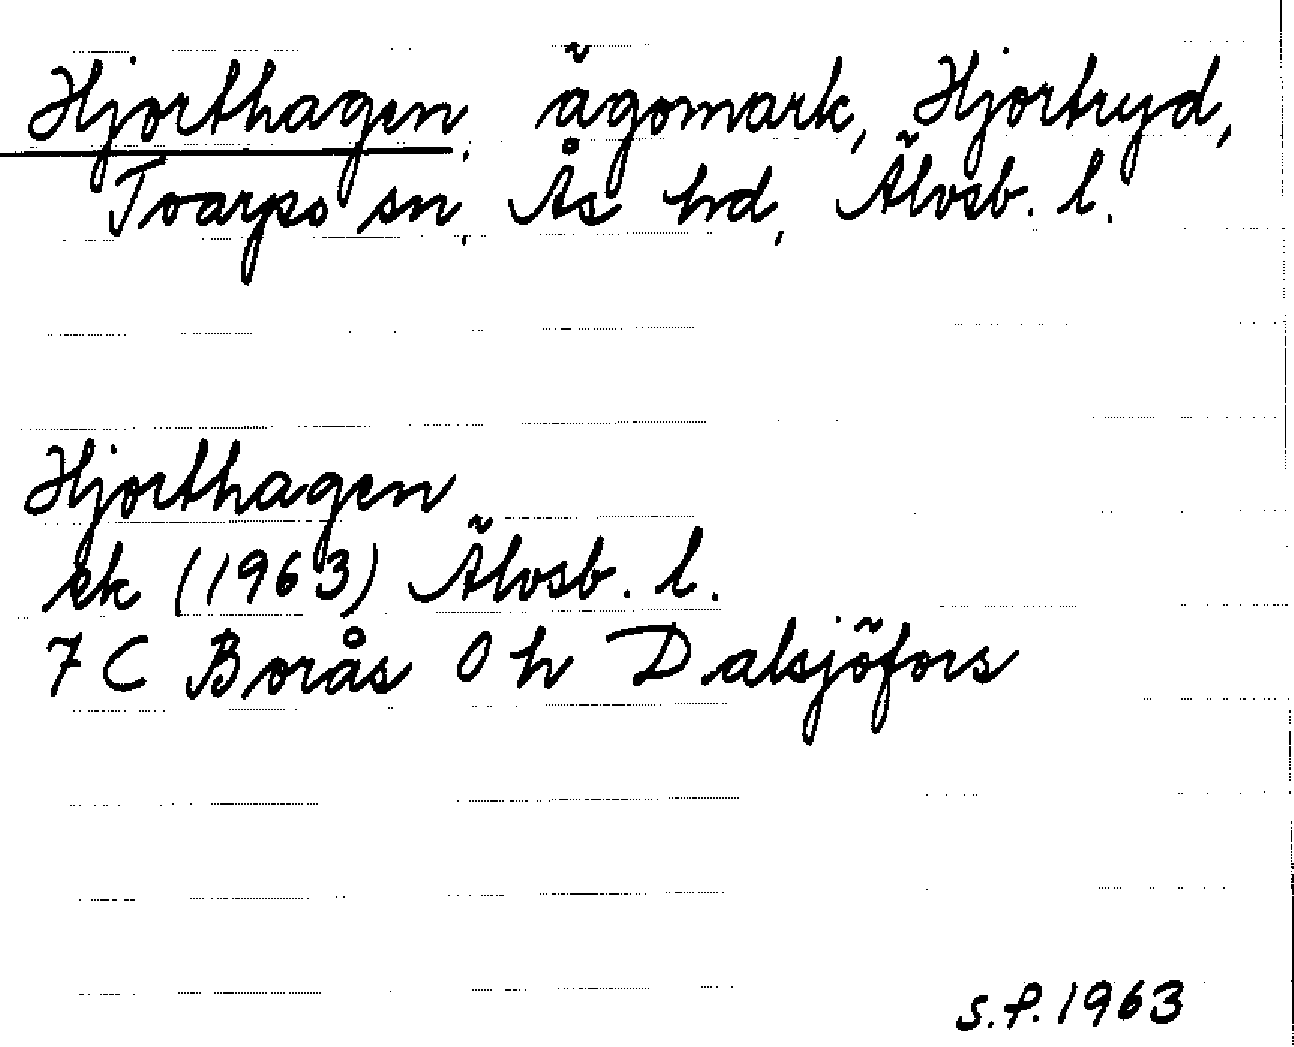 Hjorthagen, ägomark, Hjortryd,
Toarps sn, Ås hd, Älvsb. l.
Hjorthagen
ek (1963) Älvsb. l.
7 C Borås 0 h Dalsjöfors
S.F. 1963